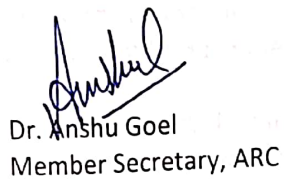 Anshul
Dr. Anshu Goel
Member Secretary, ARC